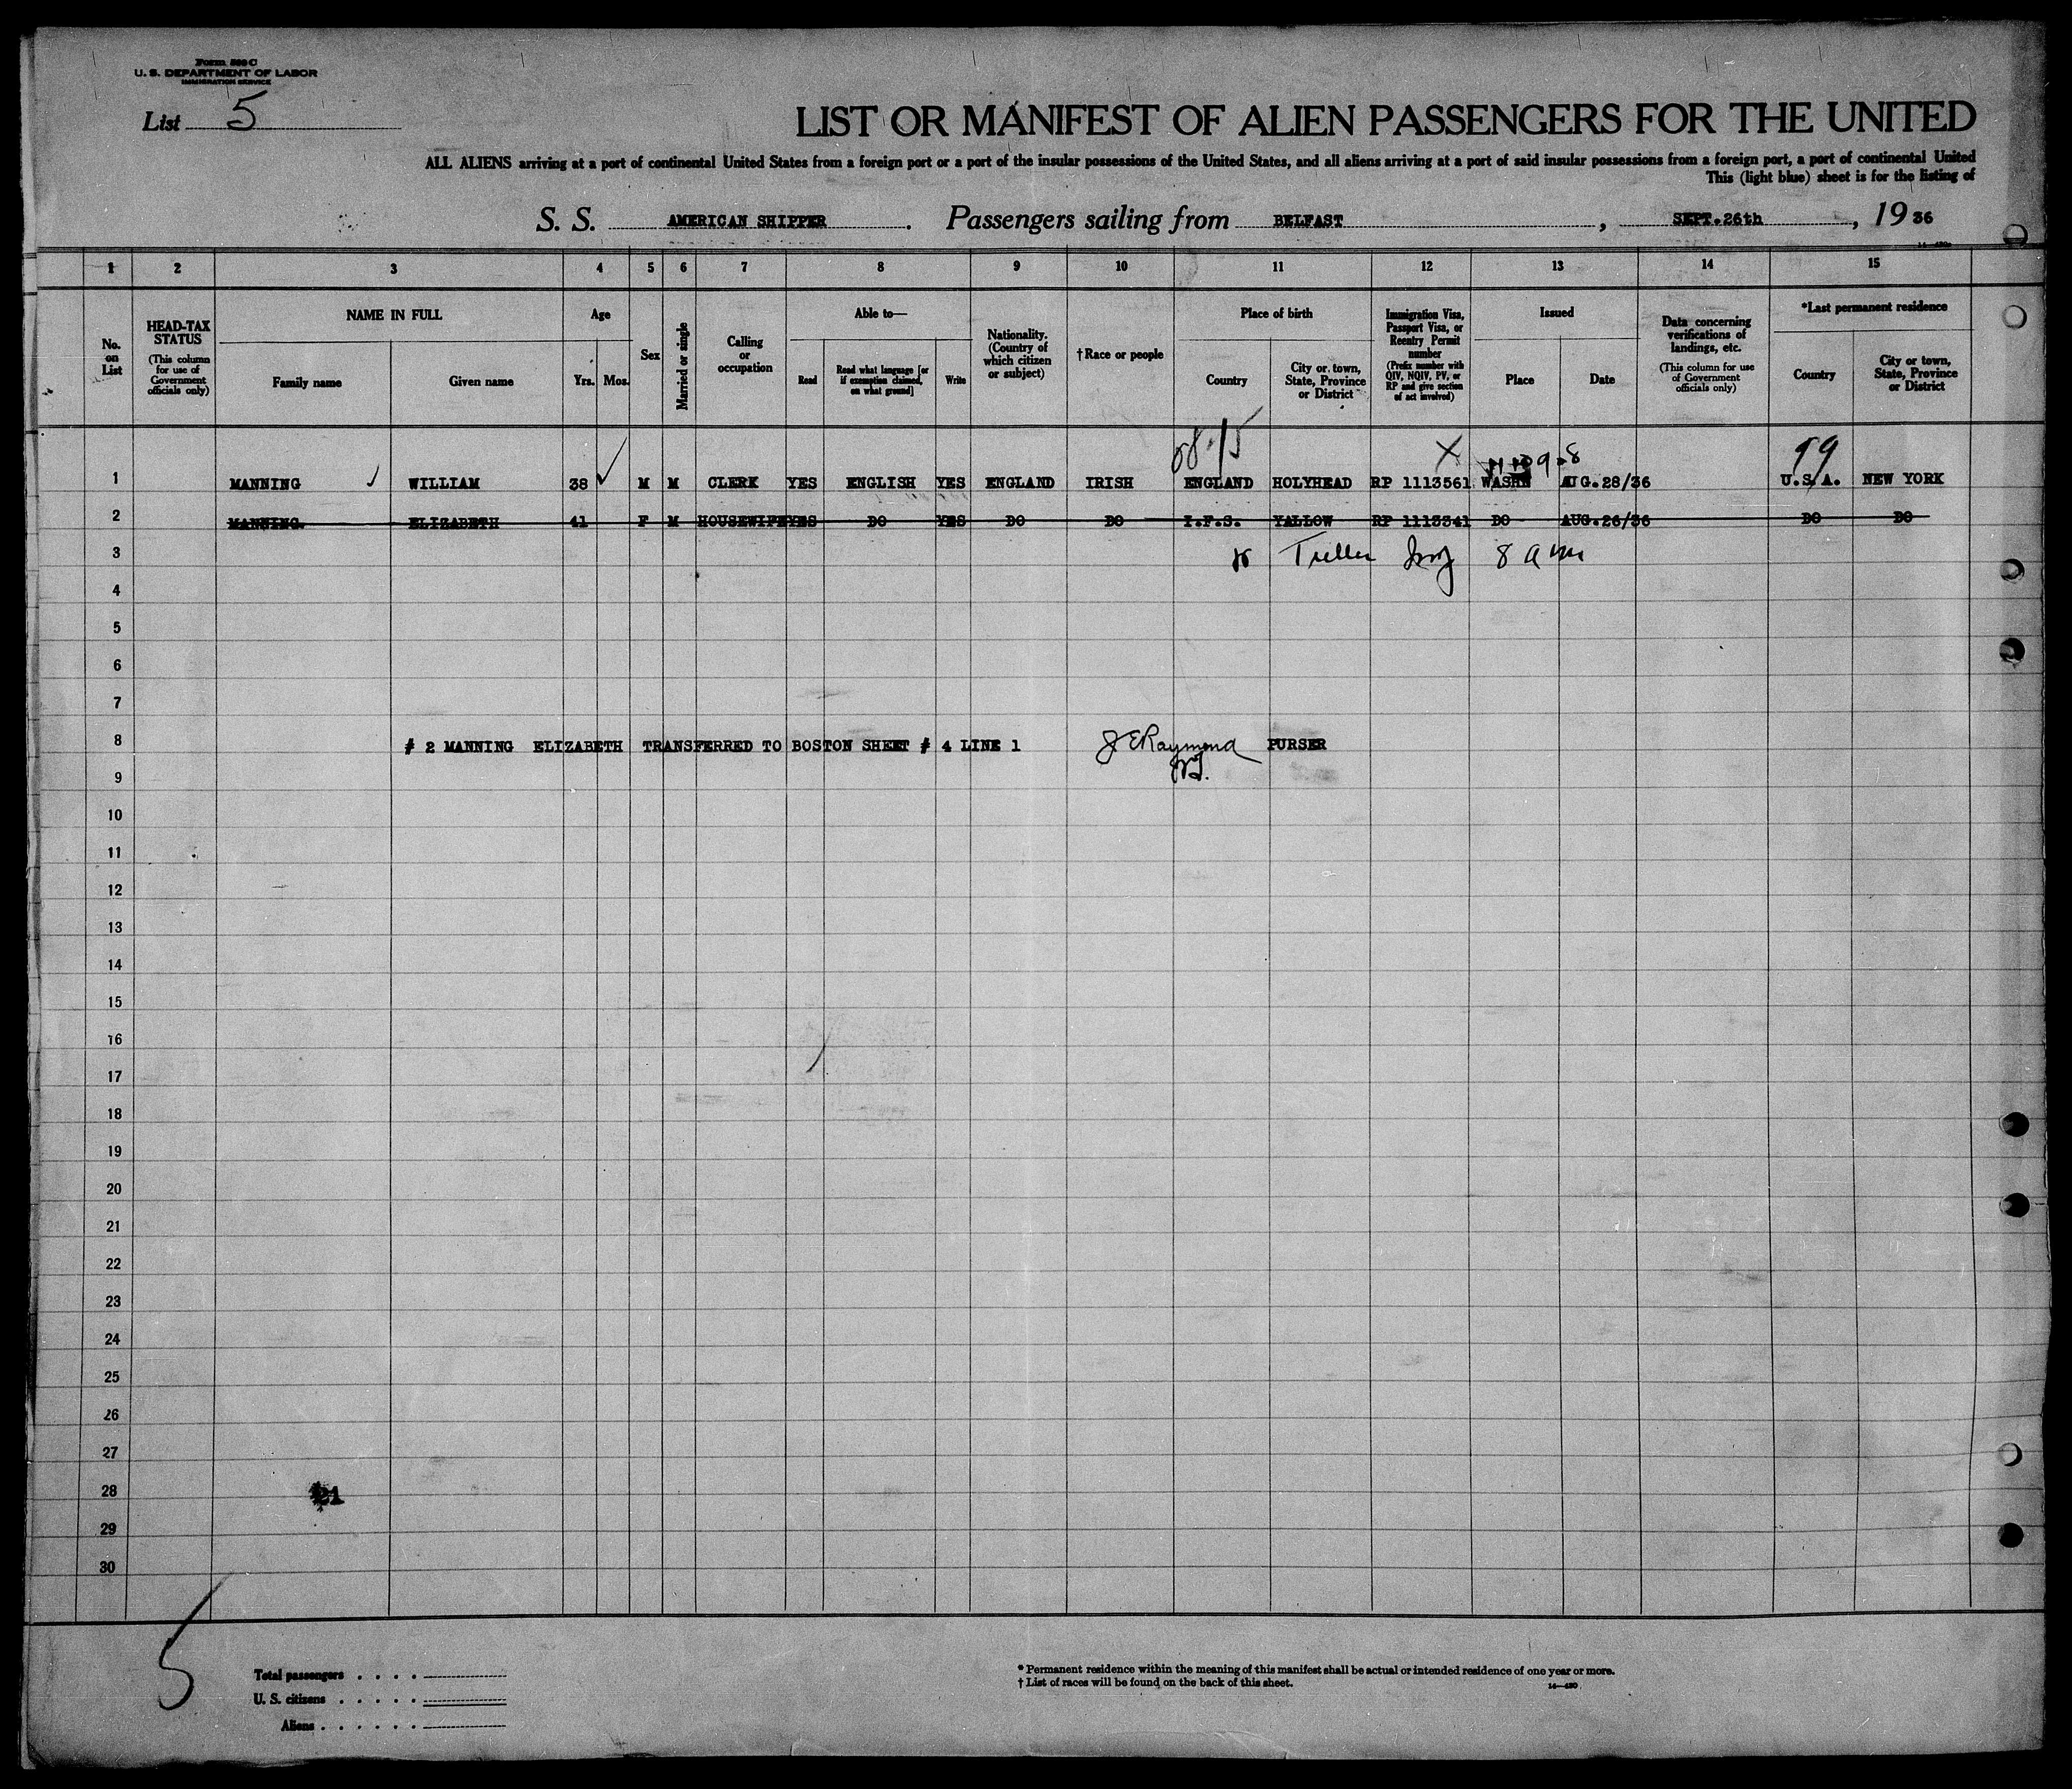 Form 500 C
U. S. DEPARTMENT OF LABOR
IMMIGRATION SERVICE
List 5
LIST OR MANIFEST OF ALIEN PASSENGERS FOR THE UNITED
ALL ALIENS arriving at a port of continental United States from a foreign port or a port of the insular possessions of the United States, and all aliens arriving at a port of said insular possessions from a foreign port, a port of continental United
This (light blue) sheet is for the listing of
S. S. AMERICAN SHIPPER. Passengers sailing from BELFAST, SEPT.26th, 19 36
1 2 3 4 5 6 7 8 9 10 11 12 13 14 15
No. on List
HEAD-TAX STATUS
(This column for use of Government officials only)
NAME IN FULL
Family name
Given name
Age
Yrs. Mos.
Sex
Married or single
Calling or occupation
Able to—
Read
Read what language [or if exemption claimed, on what ground]
Write
Nationality. (Country of which citizen or subject)
†Race or people
Place of birth
Country
City or town, State, Province or District
Immigration Visa, Passport Visa, or Reentry Permit number
(Prefix number with QIV, NQIV, PV, or RP and give section of act involved)
Issued
Place
Date
Data concerning verifications of landings, etc.
(This column for use of Government officials only)
*Last permanent residence
Country
City or town, State, Province or District
99
1 MANNING WILLIAM 38 M M CLERK YES ENGLISH YES ENGLAND IRISH ENGLAND HOLYHEAD RP 1113561 WASHN AUG.28/36 U.S.A. NEW YORK
2 MANNING. ELIZABETH 41 F M HOUSEWIFE YES DO YES DO DO I.F.S. YALLOW RP 1113341 DO AUG.26/36 DO DO
3
4
5
6
7
8 # 2 MANNING ELIZABETH TRANSFERRED TO BOSTON SHEET # 4 LINE 1 J E Raymond PURSER
9
10
11
12
13
14
15
16
17
18
19
20
21
22
23
24
25
26
27
28
29
30
5
Total passengers . . . .
U. S. citizens . . . . .
Aliens . . . . . .
* Permanent residence within the meaning of this manifest shall be actual or intended residence of one year or more.
† List of races will be found on the back of this sheet.
14—430